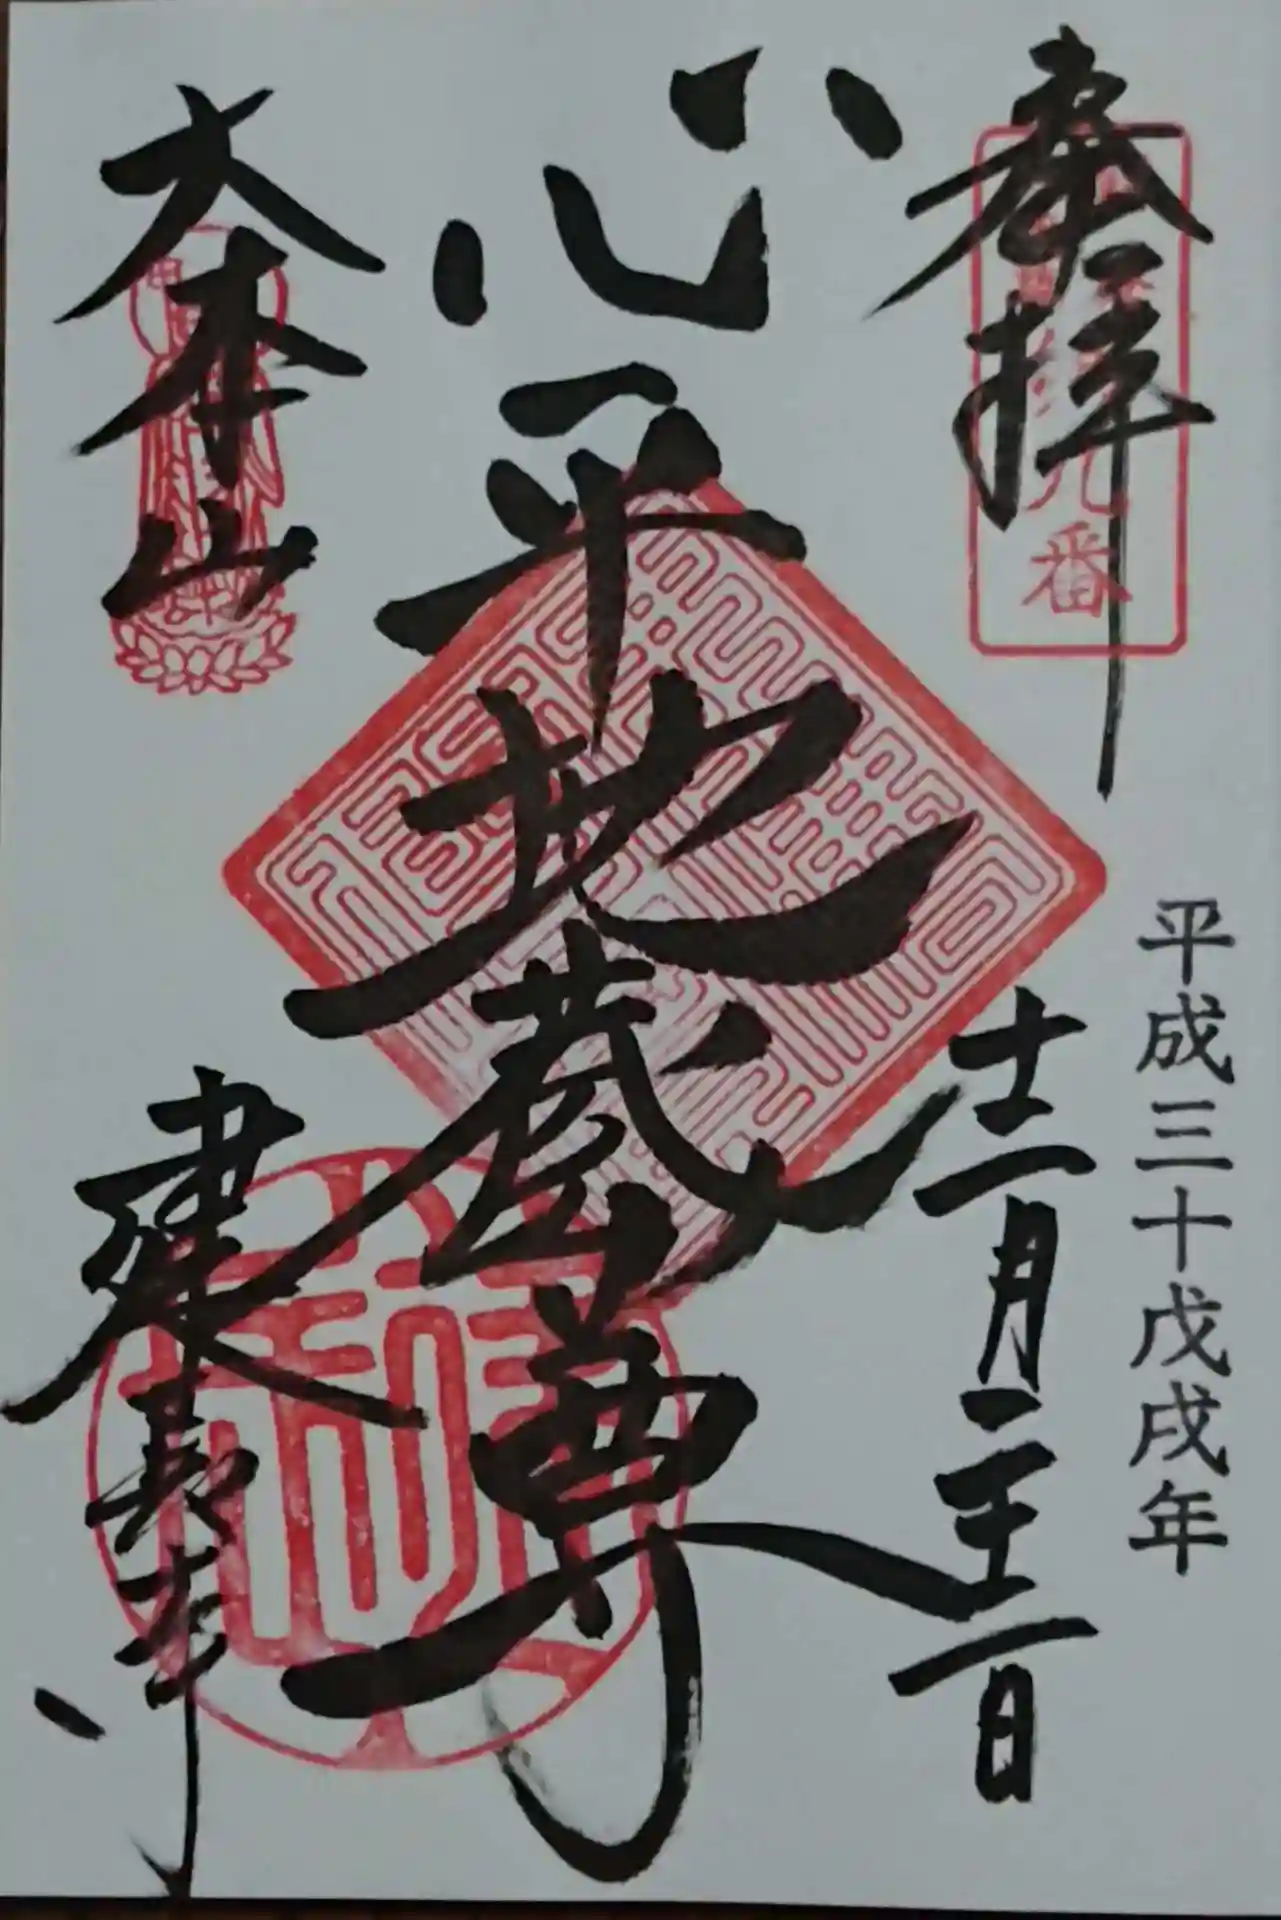 奉拝
九番
平成三十戊戌年
十二月二十二日
心平地蔵尊
大本山
建長寺